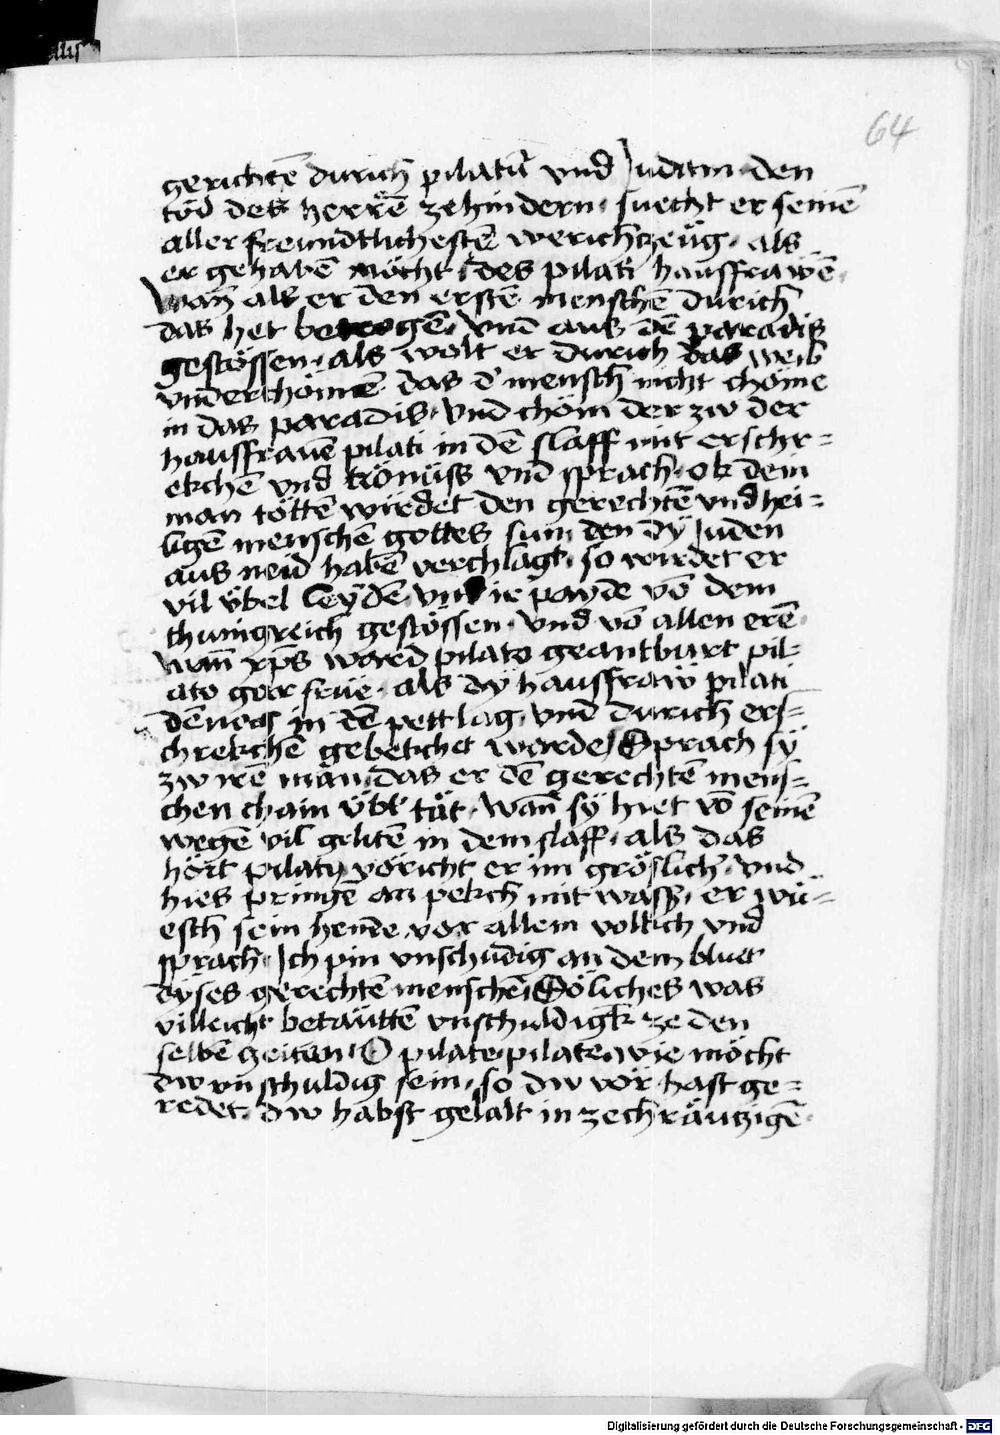 64
gerichtē durich pilatū vnd Judam den
tod des herrē ze hindern · suecht er seinē
aller freundtlichestē werichtzeüg · als
er gehabē möcht · des pilati hausfrawē ·
Wañ als er den erstē menschē durich
das het betrogē · vnd aus dē paradis
gestössen · als wolt er durich das weib
vnderchömē das d' mensch nicht chöme
in das paradis · vnd chöm der zw der
hausfrauē pilati in dē slaff mit erschr=
ekchē vnd trönüss vnd sprach · ok dein
man töttē würdet den gerechtē vnd hei=
ligē menschē gottes sun den dÿ Juden
aus neid habē verchlagt · so würdet er
vil übel leÿdē · vnd ir payde vō dem
chunigreich gestössen · vnd vō allen erē ·
Wañ xp̄s ward pilato geantburt pil=
ato gar früe · als dÿ hausfraw pilati
dēnoch in dē pett lag · vnd durich ers=
chrekchē gebekchet warde Sprach sÿ
zw irē man das er dē gerechtē mens=
chen chain übl tät · Wañ sÿ hiet vō seinē
wegē vil gelitē in dem slaff · als das
hört pilatus voricht er im gröslich · vnd
hies pringē an pekch mit wass' · er wü=
esch sein hende vor allem volkch vnd
sprach · Ich pin vnschudig an dem bluet
dÿses gerechtē menschē Söliches was
villeicht betäuttē vnschuldigk ze den
selbē zeiten O pilate pilate wie möcht
dw vnschuldig sein · so dw vör hast ge=
redet · dw habst gebalt in ze chräutzigē ·
Digitalisierung gefördert durch die Deutsche Forschungsgemeinschaft - DFG